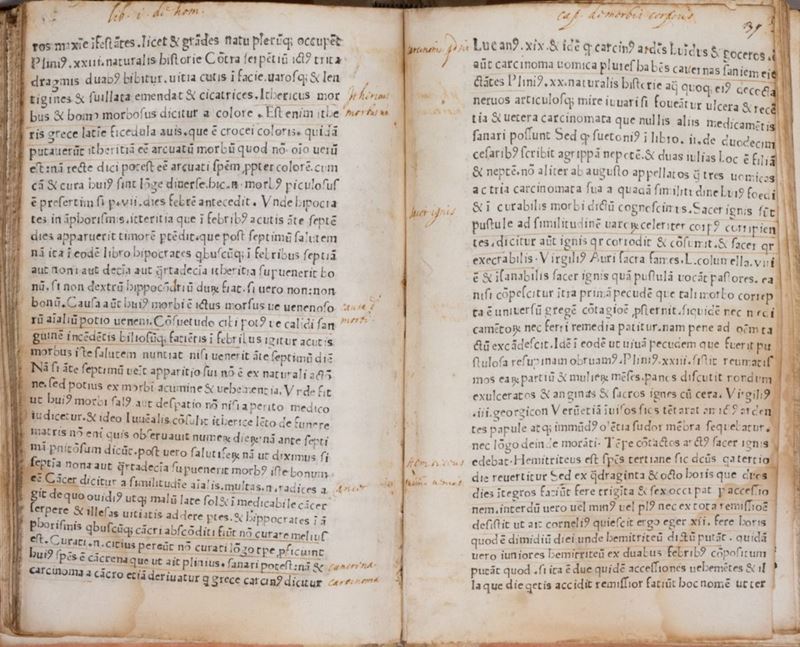 lib. i. de hom.
ros maxīe īfestātes. licet & grādes natu plerūq; occupēt
Pliniꝰ. xxiii. naturalis historie Cōtra serpētiū ictꝰ trita
dragmis duabꝰ bibitur. uitia cutis ī facie. uarosq; & len
tigines & suillata emendat & cicatrices. Ithericus mor
bus & homo morbosus dicitur a colore. Est enim ithe
ris grece latīe ficedula auis. que ē crocei coloris. quidā
putauerūt itheritiā eē arcuatū morbū quod nō. oīo uerū
est: nā recte dici potest eē arcuati spēm ꝓpter colorē. cum
cā & cura huiꝰ sint lōge diuerse. hic. n. morbꝰ piculosus
ē presertim si p. vii. dies febrē antecedit. Vnde hipocra
tes in aphorismis. itteritia que ī febribꝰ acutis āte septē
dies apparuerit timorē ptēdit. que post septimū salutem
nā ita ī eodē libro hipocrates qbuscūq; ī febribus septīa
aut noni aut decīa aut qrtadecīa itheritia supuenerit bo
nū. si non dextrū hippocōdriū duꝝ fiat. si uero non: non
bonū. Causa aūt huiꝰ morbi ē ictus morsus ue uenenoso
rū aīaliū potio ueneni. Cōsuetudo cibi potꝰ ue calidi san
guinē incēdētis biliosūq; faciētis ī febribus igitur acutis
morbus iste salutem nuntiat nisi uenerit āte septimū diē
Nā si āte septimū ueīt apparitio sui nō ē ex naturali actō
ne. sed potius ex morbi acumine & uehementia. Vnde fit
ut huiꝰ morbi salꝰ aut despatio nō nisi a perito medico
iudicetur. & ideo Iuuēalis cōsulit itherice lēto de funere
matris nō enī quis obseruauit numeꝝ dieꝝ: nā ante septi
mā pnitōsum dicūt. post uero salutifeꝝ nā ut diximus si
septīa nona aut qrtadecīa supuenerit morbꝰ iste bonum
eē Cācer dicitur a similitudīe aīalis. multas. n. radices a
git de quo ouidiꝰ utq; malū late solet ī medicabile cācer
serpere & illesas uitiatis addere ptes. & hippocrates ī a
phorismis qbuscūq; cācri abscōditi fiūt nō curare melius
est. Curati. n. citius pereūt nō curati lōgo tpe ꝓficiunt
huiꝰ spēs ē cācrena que ut ait plinius. sanari potest: nā &
carcinoma a cācro etiā deriuatur q grece carcinꝰ dicitur
Itherious
morbus
causa
morbi
cancer
cancrina
carcinoma
cap. de morbis corporis
37
Lucanꝰ. xix. & idē q carcinꝰ ardēs
aūt carcinoma uomica plures habēs cauernas saniem
ctātes Pliniꝰ. xx. naturalis histcrie aq quoq; eiꝰ decocta
neruos articulosq; mire iuuari si foueātur ulcera & recē
tia & uetera carcinomata que nullis aliis medicamētis
sanari possunt Sed q suetoniꝰ ī libro. ii. de duodecim
cesaribꝰ scribit agrippā nepotē. & duas iulias loc ē filiā
& neptē. nō aliter ab augusto appellatos q tres uomicas
ac tria carcinomata sua a quadā similitudine huiꝰ foedi
& ī curabilis morbi dictū cognoscimus. Sacer ignis sūt
pustule ad similitudinē uaroꝝ celeriter corpꝰ corripien
tes. dicitur aūt ignis qr corrodit & cōsumit. & sacer qr
execrabilis. Virgiliꝰ Auri sacra fames. L. columella. vii
ē & īsanabilis sacer ignis quā pustulā uocāt pastores. ea
nisi cōpescitur ītra primā pecudē que tali morbo correp
ta ē uniuersū gregē cōtagiōe ꝓsternit. siquidē nec medi
camētoꝝ nec ferri remedia patitur. nam pene ad oēm ta
ctū excādescit. Idē ī eodē ut uiuā pecudem que fuerit pu
stulosa resupinam obruamꝰ. Pliniꝰ. xxiii. sistit reumatis
mos eaꝝ partiū & mulieꝝ mēses. panes discutit rōrdum
exulceratos & anginas & sacros ignes cū cera. Virgiliꝰ
.iii. georgicon Veruētiā īuisos sics tētarat amictꝰ arden
tes papule atq; immūdꝰ olētia sudor mēbra sequebatur.
nec lōgo deinde morāti. Tēpe cōtactos artꝰ sacer ignis
edebat. Hemitriteus est spēs tertiane sic dcūs. qa tertio
die reuertitur Sed ex qdraginta & octo horis que duos
dies ītegros faciūt fere trigīta & sex occupat paccessio
nem. interdū uero uel minꝰ uel plꝰ nec ex tota remissiōe
desistit ut ait corneliꝰ quiescit ergo eger xii. fere horis
quod ē dimidiū diei unde hemitriteū dictū putāt. quidā
uero iuniores hemitriteū ex duabus febribꝰ cōpositum
putāt quod. si ita ē due quidē accessiones uehemētes & il
la que die qetis accidit remissior faciūt hoc nomē ut ter
sacer ignis